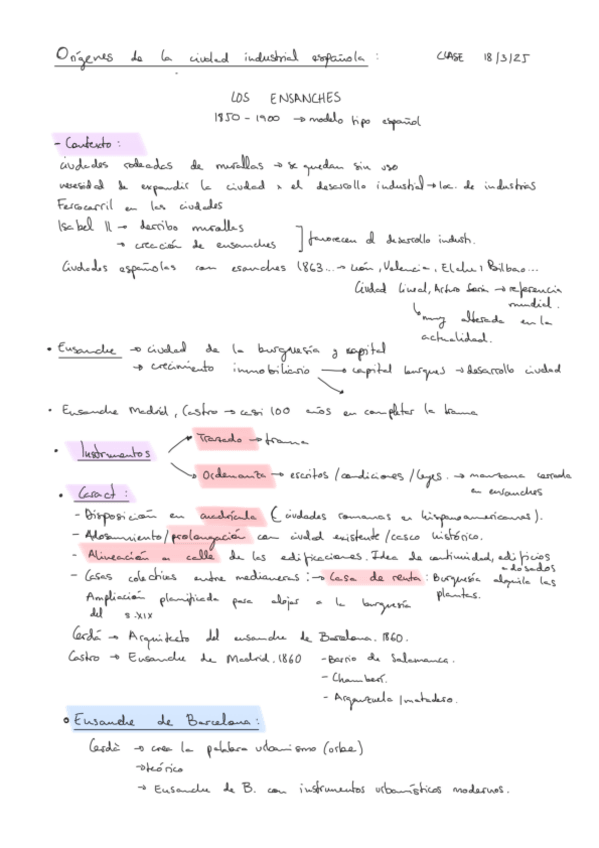 Orígenes de la ciudad industrial española: CLASE 18/3/25
LOS ENSANCHES
1850 - 1900 → modelo tipo español
- Contexto:
ciudades rodeadas de murallas → se quedan sin uso
necesidad de expandir la ciudad x el desarrollo industrial → loc. de industrias
Ferrocarril en las ciudades
Isabel II → derribo murallas
→ creación de ensanches ] favorecen el desarrollo industr.
Ciudades españolas con esanches 1863... → León, Valencia, Elche, Bilbao...
Ciudad lineal, Arturo Soria → referencia
mundial.
muy alterada en la
actualidad.
• Ensanche → ciudad de la burguesía y capital
→ crecimiento inmobiliario → capital burgues → desarrollo ciudad
• Ensanche Madrid, Castro → casi 100 años en completar la trama
• Instrumentos
Trazado → trama
Ordenanza → escritos / condiciones / leyes. → manzana cerrada
en ensanches
• Caract:
- Disposición en cuadrícula (ciudades romanas en hispanoamericanas).
- Adosamiento/prolongación con ciudad existente / casco histórico.
- Alineación a calle de las edificaciones. Idea de continuidad, edificios
adosados
- Casas colectivas entre medianeras: → Casa de renta: Burguesía alquila las
plantas.
Ampliación planificada para alojar a la burguesía
del s.XIX
Cerdá → Arquitecto del ensanche de Barcelona. 1860.
Castro → Ensanche de Madrid. 1860 - Barrio de Salamanca.
- Chamberí.
- Arganzuela / matadero.
• Ensanche de Barcelona:
Cerdà → crea la palabra urbanismo (orbe)
→ teórico
→ Ensanche de B. con instrumentos urbanísticos modernos.